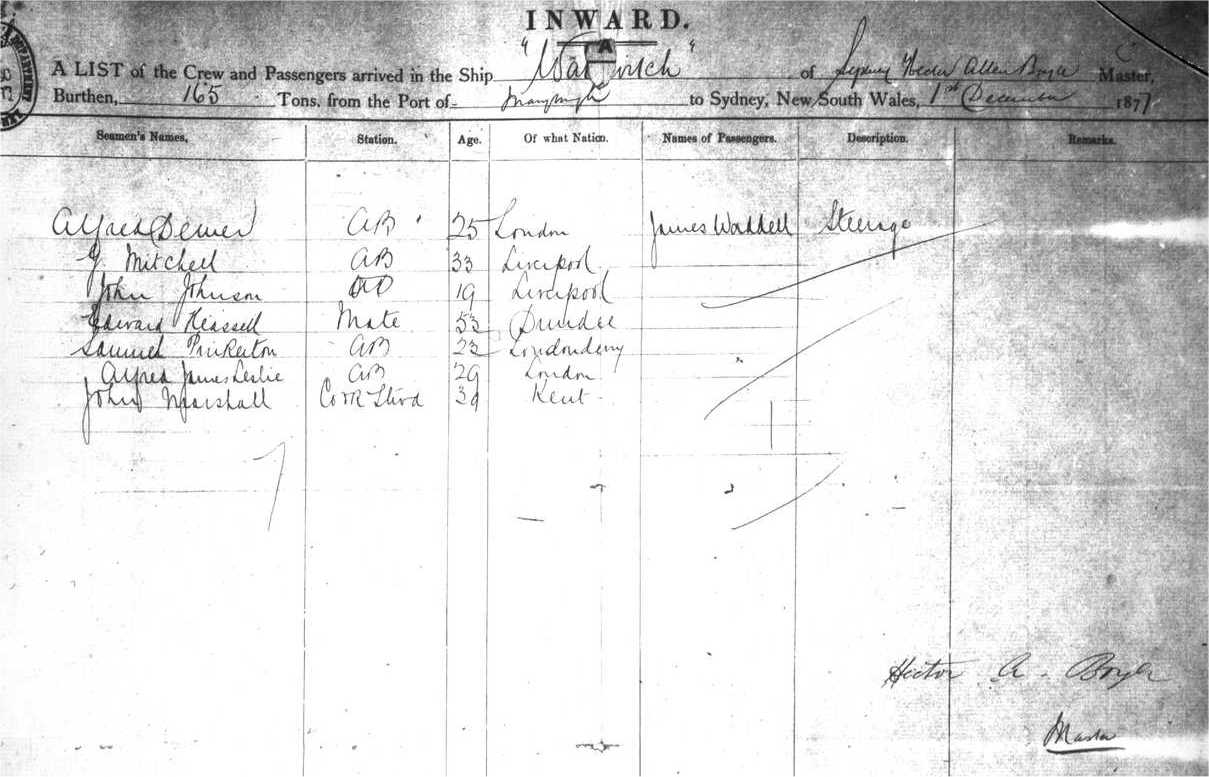 INWARD.
A LIST of the Crew and Passengers arrived in the Ship "Warwick" of Sydney Hector Allen Boyle Master,
Burthen, 165 Tons, from the Port of Marybro' to Sydney, New South Wales, 1st December 1877
Seamen's Names, Station. Age. Of what Nation. Names of Passengers. Description. Remarks.
Alfred AB 25 London James Waddell Steerage
Mitchell AB 33 Liverpool
John Johnson 19 Liverpool
Edward Mate 53 Dundee
Samuel Pinkerton AB 23 Londonderry
Alfred James Leslie AB 29 London
John Marshall Cook Stwd 39 Kent
Hector A. Boyle
Master